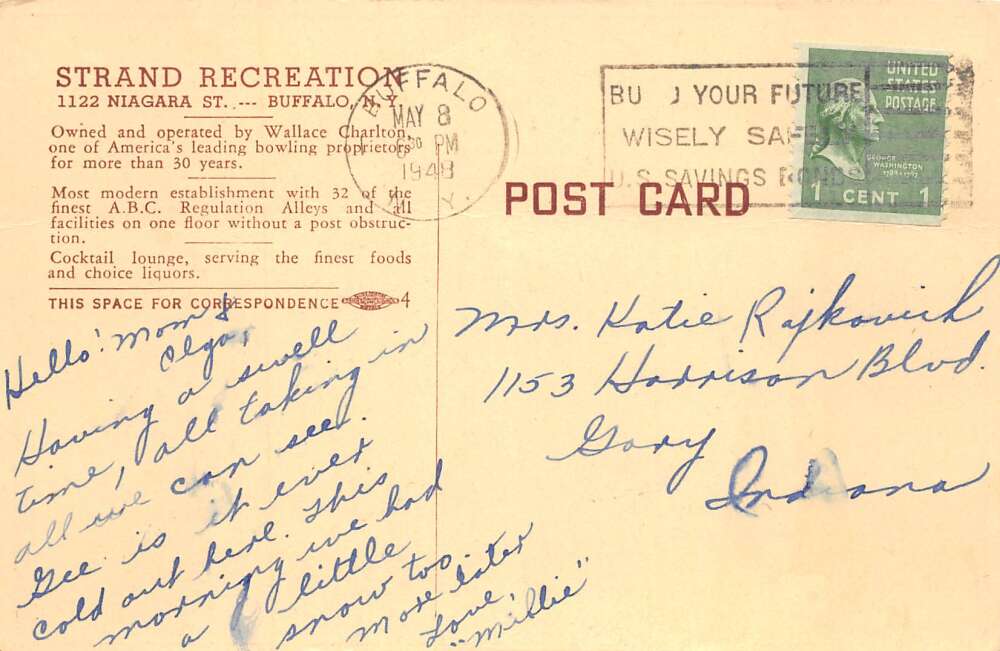 STRAND RECREATION
1122 NIAGARA ST. --- BUFFALO, N. Y.
Owned and operated by Wallace Charlton,
one of America's leading bowling proprietors
for more than 30 years.
Most modern establishment with 32 of the
finest A.B.C. Regulation Alleys and all
facilities on one floor without a post obstruc-
tion.
Cocktail lounge, serving the finest foods
and choice liquors.
THIS SPACE FOR CORRESPONDENCE 4
Hello! Mom &
Olga,
Having a swell
time, all taking in
all we can see.
Gee is it ever
cold out here. This
morning we had
a little
snow too.
More later
Love,
"Millie"
BUFFALO
MAY 8
PM
1948
Y.
BU D YOUR FUTURE
WISELY SAFE
U.S. SAVINGS BOND
UNITED
STATES
POSTAGE
GEORGE
WASHINGTON
1789-1797
1 CENT 1
POST CARD
Mrs. Katie Rajkovich
1153 Harrison Blvd.
Gary
Indiana